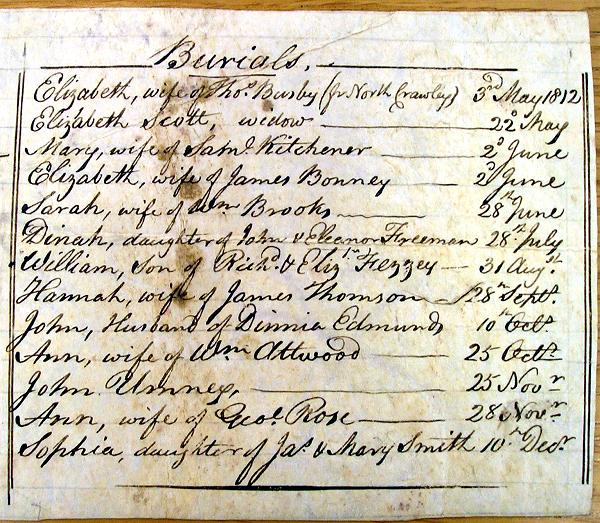 Burials,
Elizabeth, wife of Thos. Busby (fr North Crawley) 3rd May 1812
Elizabeth Scott, wedow 22d May
Mary, wife of Saml. Kitchener 2d June
Elizabeth, wife of James Bonney 2d June
Sarah, wife of Wm Brooks 28th June
Dinah, daughter of John & Eleanor Freeman 28th July
William, Son of Richd. & Elizth Fezzey 31 Augst.
Hannah, wife of James Thomson 28th Septr.
John, Husband of Dinnia Edmunds 10th Octr.
Ann, wife of Wm Attwood 25 Octr.
John Umney, 25 Novr
Ann, wife of Geo. Rose 28 Novr
Sophia, daughter of Jas. & Mary Smith 10th Decr